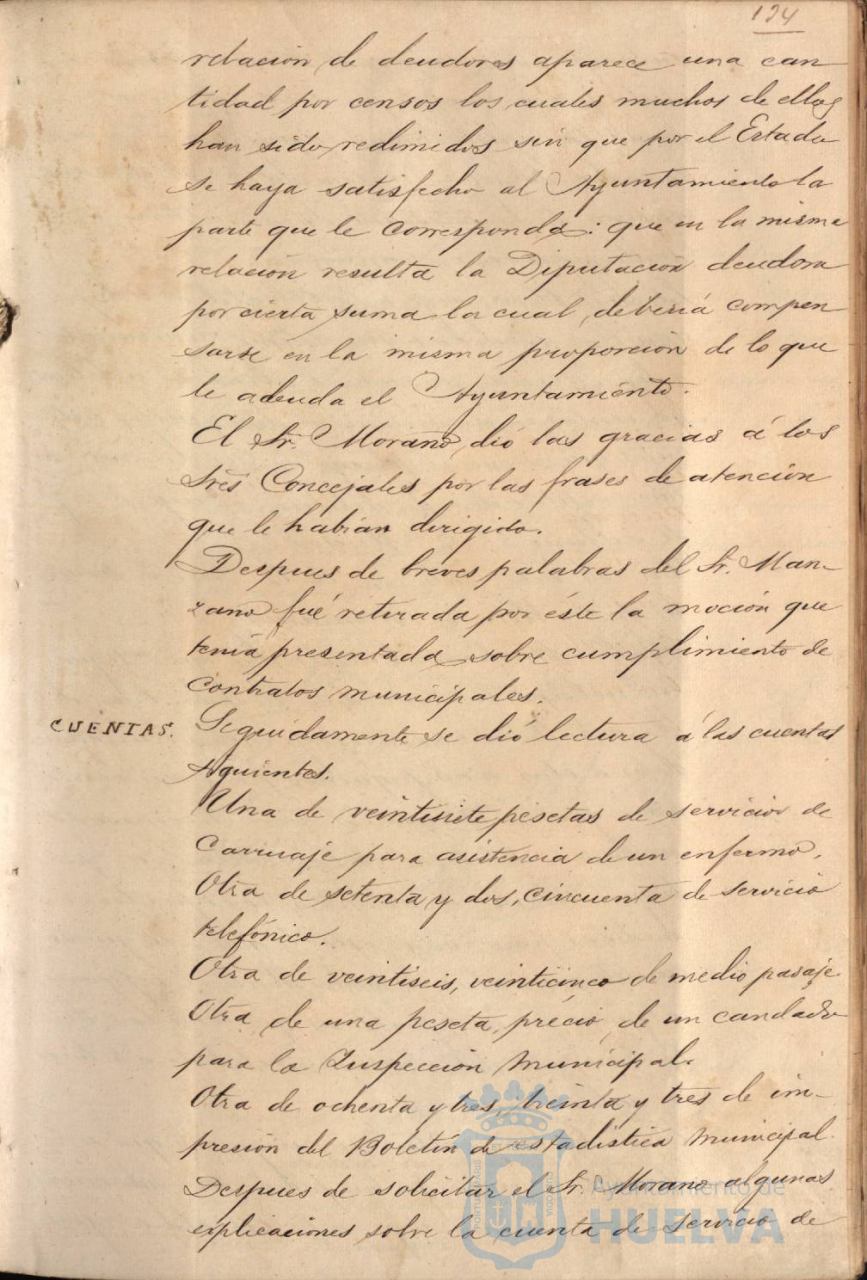 134
relación de deudores aparece una can
tidad por censos los cuales muchos de ellos
han sido redimidos sin que por el Estado
se haya satisfecho al Ayuntamiento la
parte que le corresponda: que en la misma
relación resulta la Diputación deudora
por cierta suma la cual debería compen
sarse en la misma proporción de lo que
le adeuda el Ayuntamiento.
El Sr. Morano dió las gracias á los
Sres Concejales por las frases de atención
que le habian dirigido.
Despues de breves palabras del Sr. Man-
zano fué retirada por éste la moción que
tenia presentada sobre cumplimiento de
contratos municipales.
CUENTAS.
Seguidamente se dió lectura á las cuentas
siguientes.
Una de veintisiete pesetas de servicio de
carruaje para asistencia de un enfermo.
Otra de setenta y dos, cincuenta de servicio
telefónico.
Otra de veintiseis, veinticinco de medio pasaje
Otra de una peseta, précio de un candado
para la Inspección Municipal.
Otra de ochenta y tres, treinta y tres de im-
presión del Boletín de estadística Municipal.
Despues de solicitar el Sr. Morano algunas
esplicaciones sobre la cuenta de servicio de
Ayuntamiento de
HUELVA